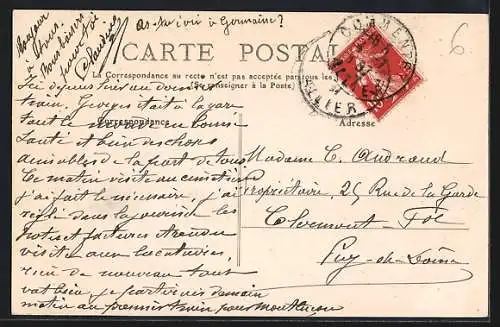 Bonjour
à tous.
Bons baisers
pour toi
Claudius
As-tu écrit à Germaine ?
6
CARTE POSTALE
La Correspondance au recto n'est pas acceptée par tous les
(Se renseigner à la Poste)
COMMENTRY
ALLIER
Correspondance
Adresse
Ici depuis hier au
train. Georges était à la gare
Tout le monde en bonne
santé et bien des choses
aimables de la part de tous
Ce matin visite au cimetière
j'ai fait le nécessaire, j'ai
réglé dans la journée les
notes et factures
visite aux locataires,
rien de nouveau tout
va bien, je partirais demain
matin au premier train pour Montluçon
Madame C. Audraud
propriétaire, 25 Rue de la Garde
Clermont-Fd
Puy-de-Dôme